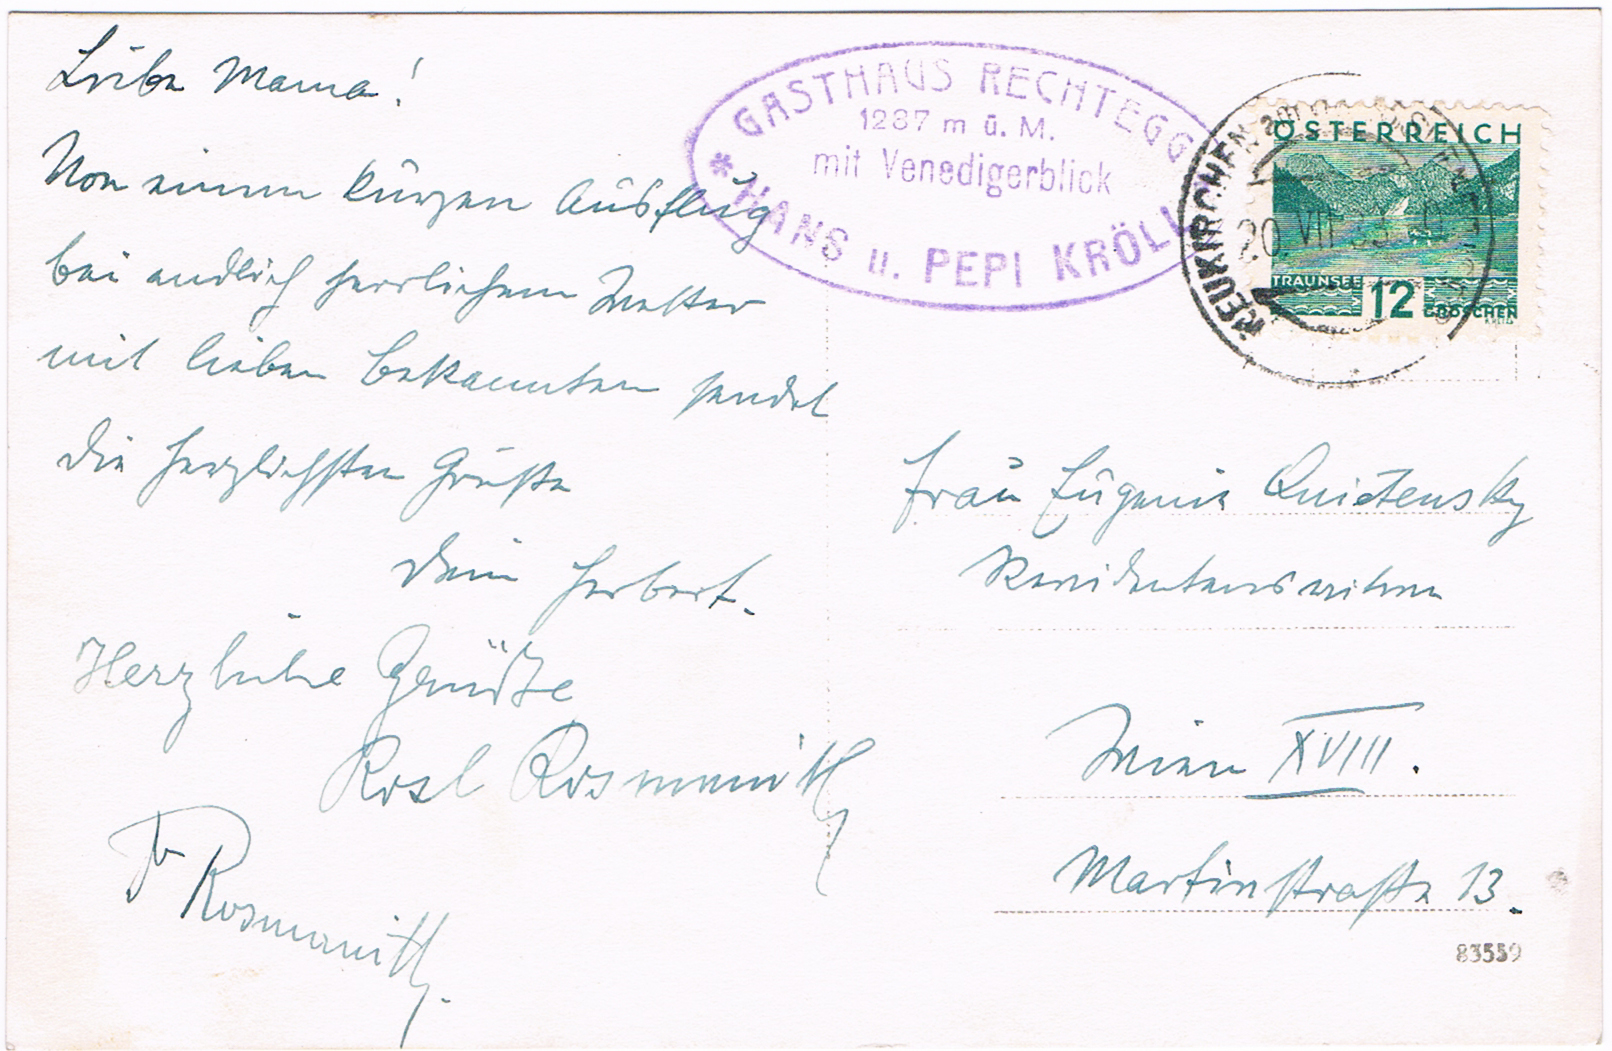 Liebe Mama!
Von einem kurzen Ausflug
bei endlich herrlichem Wetter
mit lieben Bekannten sendet
die herzlichsten Grüße
Dein Herbert.
Herzliche Grüße
Rosl Rosmanith
Rosmanith.
GASTHAUS RECHTEGG
1287 m ü. M.
mit Venedigerblick
* HANS u. PEPI KRÖLL
NEUKIRCHEN
20. VII
ÖSTERREICH
TRAUNSEE 12 GROSCHEN
Frau Eugenie Quietensky
Wien XVIII.
Martinstraße 13.
83559